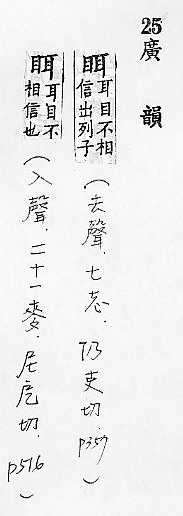 25 廣韻
眲 耳目不相信出列子 (去聲.七志.仍吏切.p359)
眲 耳目不相信也 (入聲.二十一麥.尼戹切.p516)